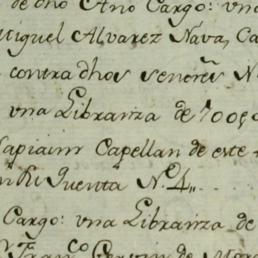 de dho Año Cargo: una
Miguel Alvarez Nava, Ca
contra dhos señores N
una Libranza de 7005
Capellan de este
Quenta N.º 4,,
Cargo: una Libranza de
Fran.co